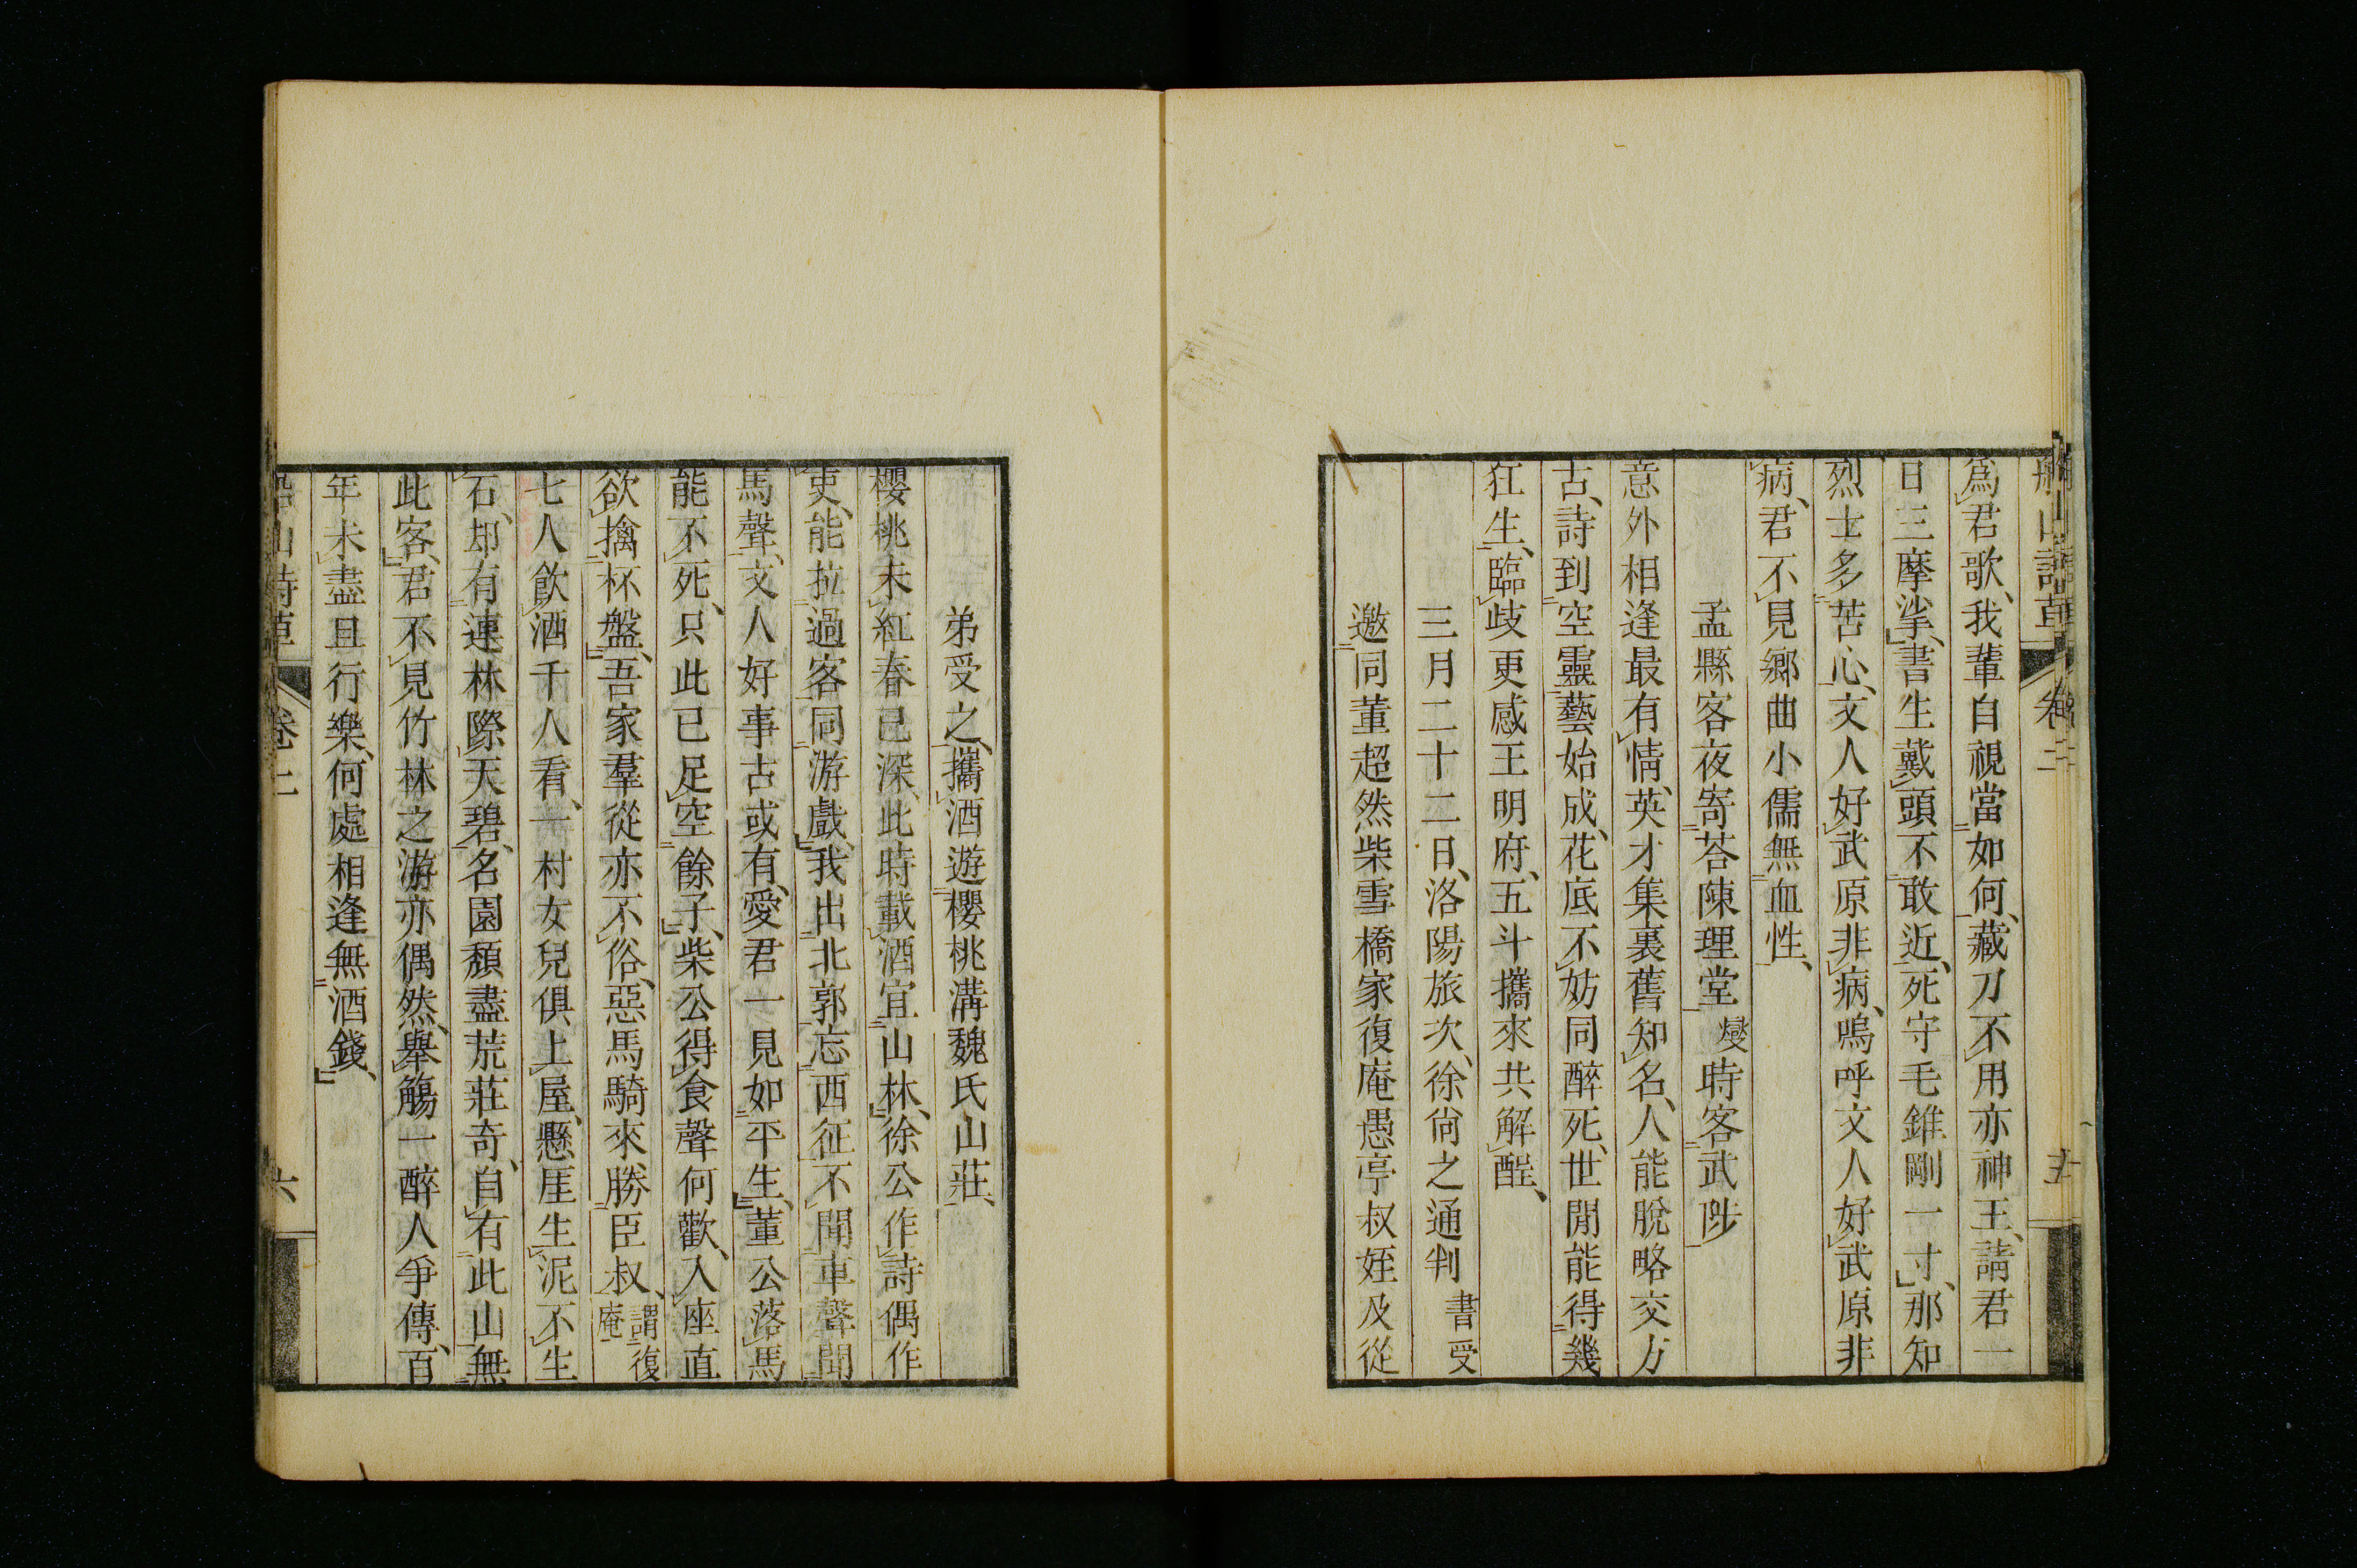 船山詩草 卷二 五
爲君歌、我輩自視當如何、藏刀不用亦神王、請君一
日三摩挲、書生戴頭不敢近、死守毛錐剛一寸、那知
烈士多苦心、文人好武原非病、嗚呼文人好武原非
病、君不見鄉曲小儒無血性、
孟縣客夜寄荅陳理堂燮時客武陟
意外相逢最有情、英才集裏舊知名、人能脫略交方
古、詩到空靈藝始成、花底不妨同醉死、世閒能得幾
狂生、臨歧更感王明府、五斗攜來共解酲、
三月二十二日、洛陽旅次、徐尙之通判書受
邀同董超然柴雪橋家復庵愚亭叔姪及從
弟受之、攜酒遊櫻桃溝魏氏山莊、
櫻桃未紅春已深、此時載酒宜山林、徐公作詩偶作
吏、能拉過客同游戲、我出北郭忘西征、不聞車聲聞
馬聲、文人好事古或有、愛君一見如平生、董公落馬
能不死、只此已足空餘子、柴公得食聲何歡、入座直
欲擒杯盤、吾家羣從亦不俗、惡馬騎來勝臣叔、謂復庵
七人飮酒千人看、一村女兒俱上屋、懸厓生泥不生
石、却有連林際天碧、名園頹盡荒莊奇、自有此山無
此客、君不見竹林之游亦偶然、舉觴一醉人爭傳、百
年未盡且行樂、何處相逢無酒錢、
船山詩草 卷二 六